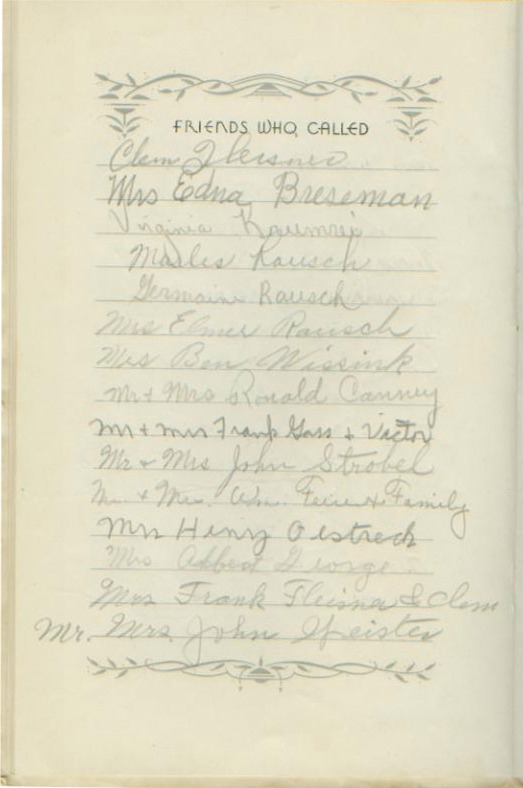 FRIENDS WHO CALLED
Clem Fleisner
Mrs Edna Breseman
Virginia Krumrei
Marlis Rausch
Germaine Rausch
Mrs Elmer Rausch
Mrs Ben Wissink
Mr + Mrs Ronald Canney
Mr + Mrs Frank Gass + Victor
Mr + Mrs John Strobel
Mr. + Mrs. & Family
Mrs Henry Oestrech
Mrs Albert George
Mrs Frank Fleisna & Clem
Mr. Mrs John